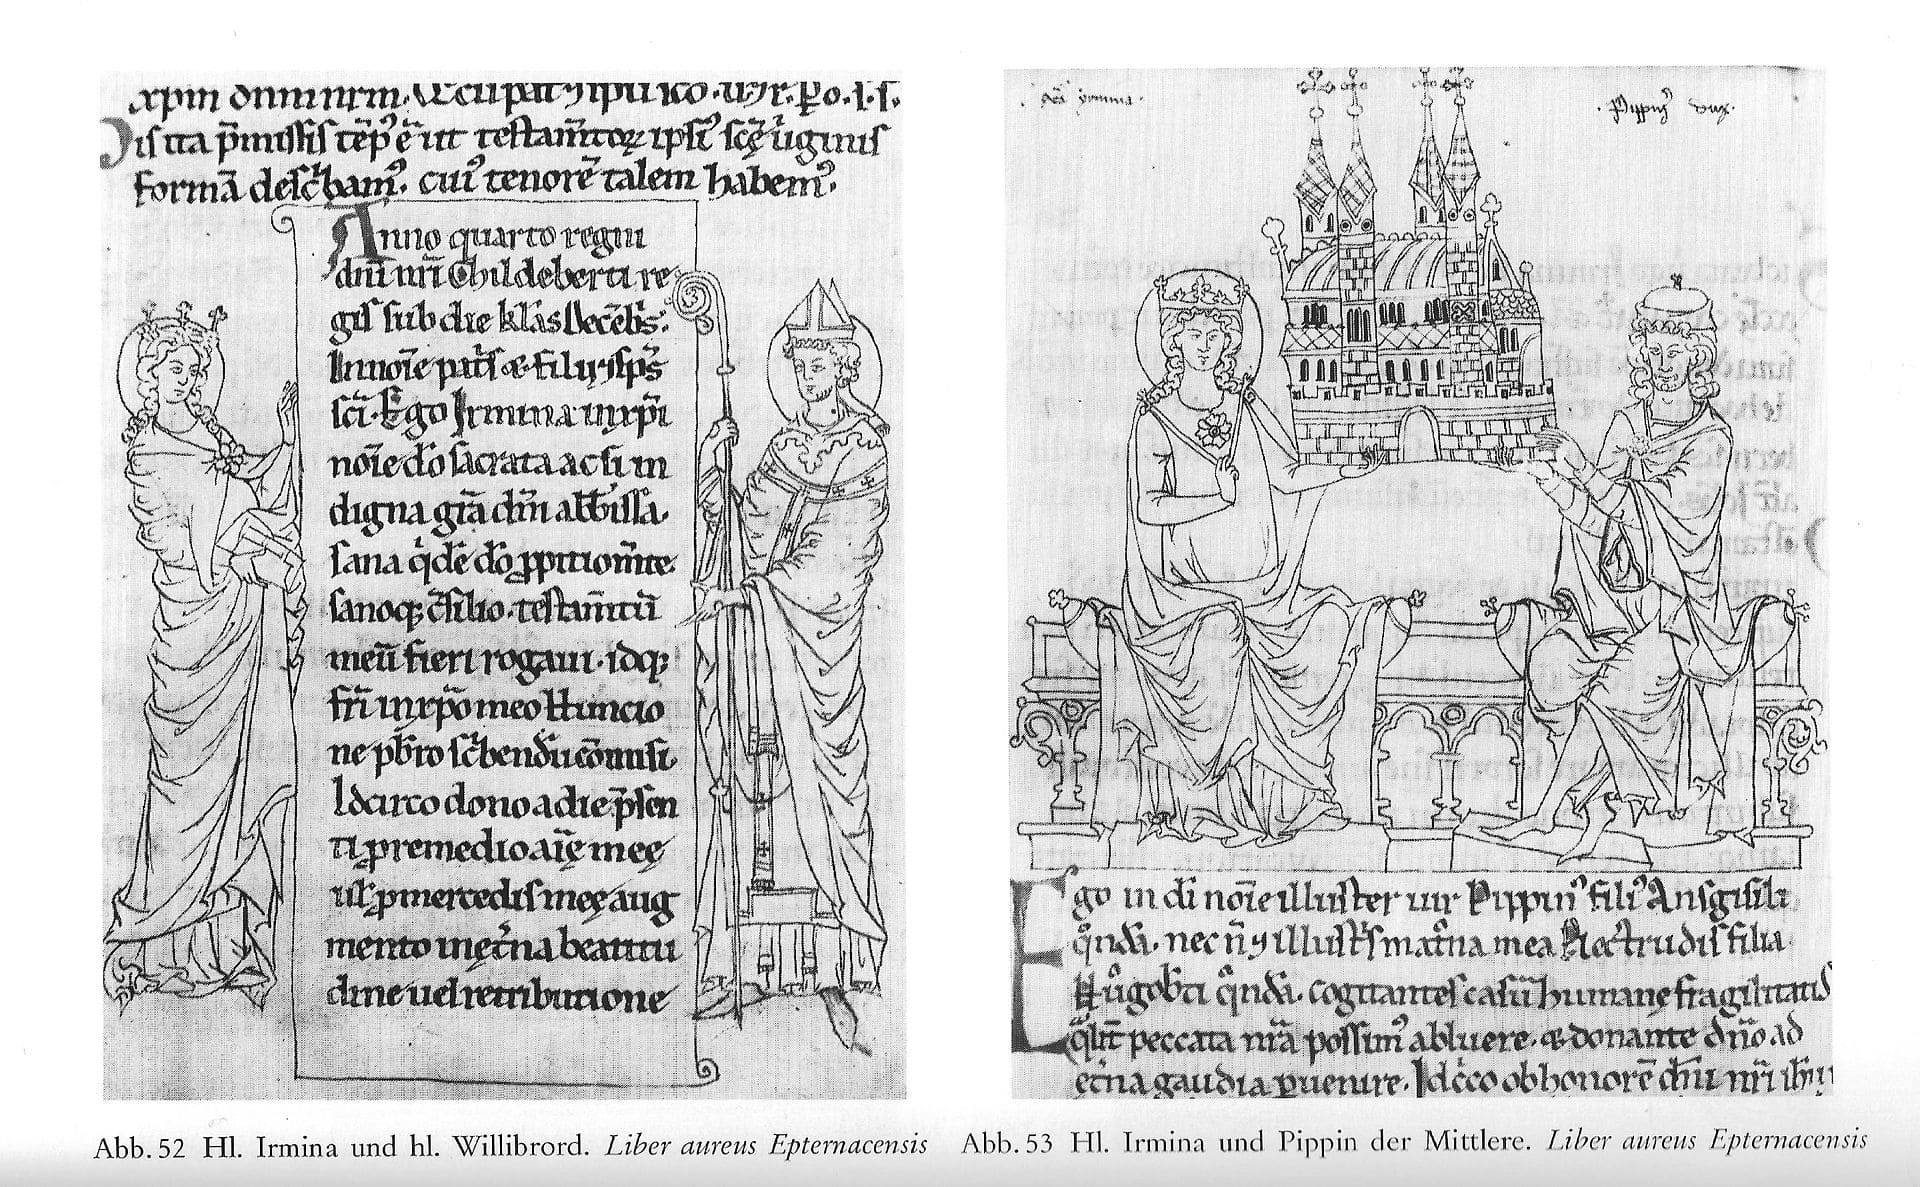 Dis ita p̄missis tēp᷒ ē ut testam̄toꝝ ipsi᷒ scę̄ ůginis
formā desc̍bam᷒. cui᷒ tenorē talem habem᷒.
Anno quarto regni
dn̄i nr̄i Childeberti re
gis sub die kl̄as Decēb̄s.
In noīe pat̍s & filii & sp̄s
sc̄i. Ego Irmina in xp̄i
noīe dō sacrata ac si in
digna gr̄a dn̄i abb̄issa.
sana q̍dē dō ꝓpitiom̄te
sanoqꝫ c̄silio. testam̄tū
meū fieri rogaui. idqꝫ
fr̄i in xp̄o meo Huncio
ne pb̄ro sc̍bendū cōmisi.
Idcirco dono a die p̄sen
ti ꝓ remedio aīę meę
ul̄ ꝓ mercedis meę aug
mento in ęt̄na beatitu
dine uel retributione
Pippin᷒ dux.
Ego in dī noīe illuster uir Pippin᷒ fili᷒ Ansgisili
q̊ndā. nec n̄ & illust̍s mat̊na mea Plectrudis filia
Hůgob̄ti q̊ndā. cogitantes casū humanę fragilitatis
q̍lit̄ peccata nr̄a possim᷒ abluere. & donante dn̄o ad
et̄na gaudia ꝑuenire. Idc̍co ob honorē dn̄i nr̄i
Abb. 52 Hl. Irmina und hl. Willibrord. Liber aureus Epternacensis
Abb. 53 Hl. Irmina und Pippin der Mittlere. Liber aureus Epternacensis